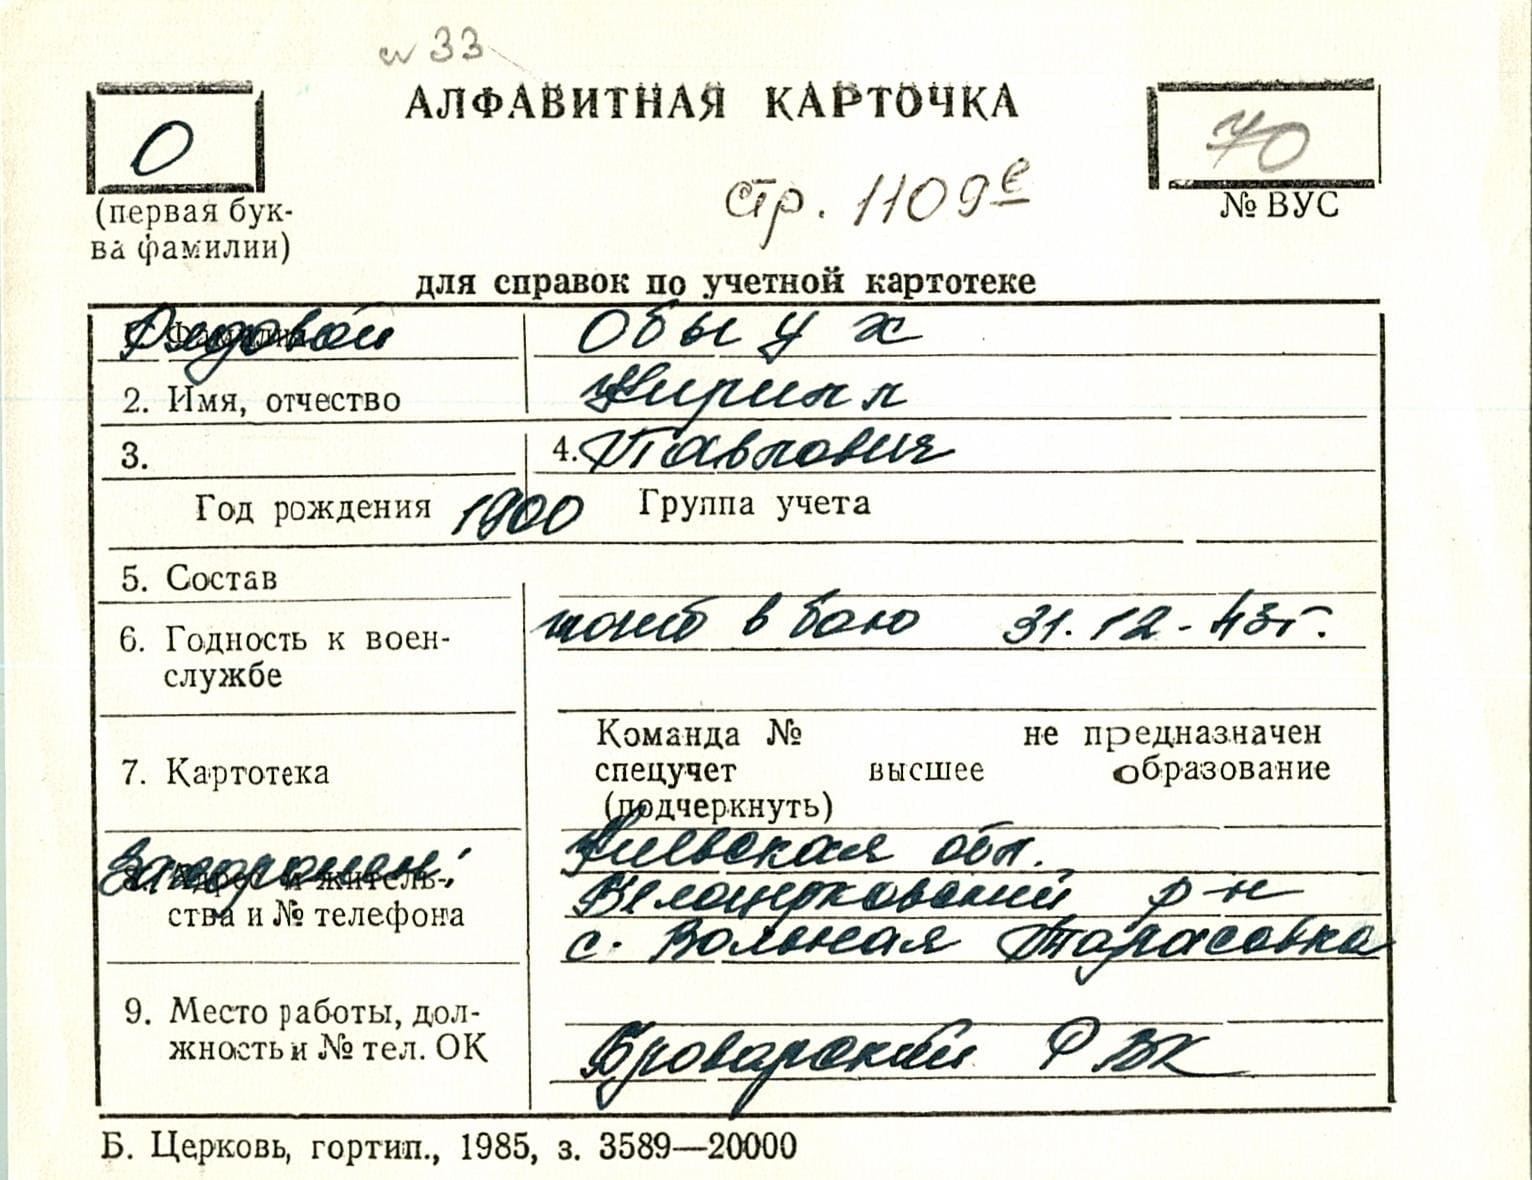 33
АЛФАВИТНАЯ КАРТОЧКА
О
70
(первая бук-
ва фамилии)
стр. 1109е
№ ВУС
для справок по учетной картотеке
Рядовой Обыух
2. Имя, отчество Кирилл
3. 4. Павлович
Год рождения 1900 Группа учета
5. Состав
6. Годность к воен-
службе
погиб в бою 31.12-43г.
7. Картотека
Команда № не предназначен
спецучет высшее образование
(подчеркнуть)
Захоронен:
8. Адрес и житель-
ства и № телефона
Киевская обл.
Белоцерковский р-н
с. Вольная Тарасовка
9. Место работы, дол-
жность и № тел. ОК
Броварский РВК
Б. Церковь, гортип., 1985, з. 3589—20000